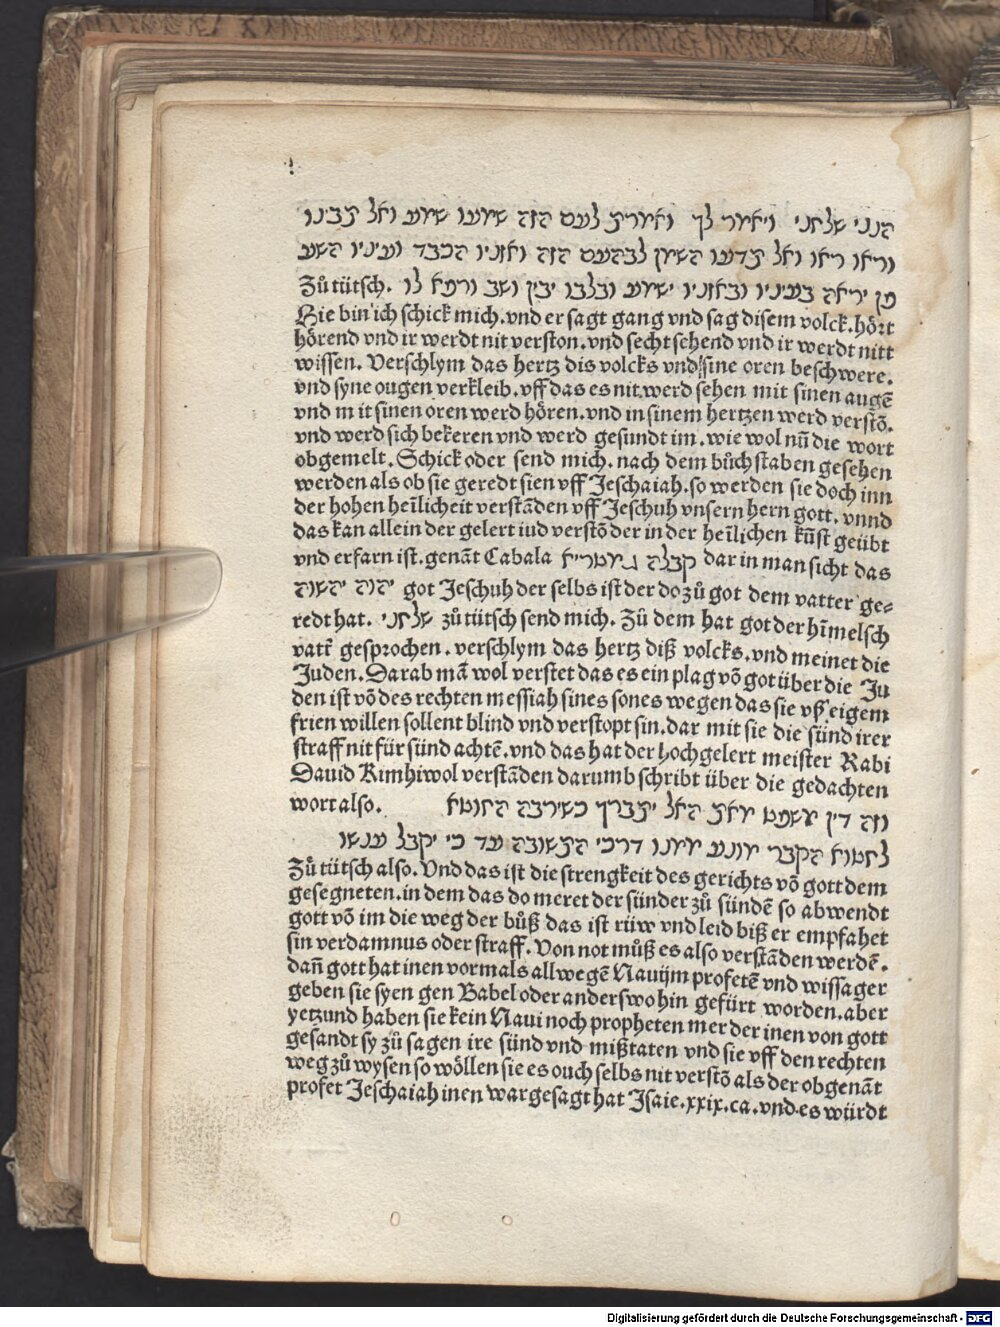 הנני שלחני ויאמר לך ואמרת לעם הזה שמעו שמוע ואל תבינו
וראו ראו ואל תדעו השמן לב העם הזה ואזניו הכבד ועיניו השע
פן יראה בעיניו ובאזניו ישמע ובלבו יבין ושב ורפא לו Zů tütsch.
Hie bin ich schick mich. vnd er sagt gang vnd sag disem volck. hört
hörend vnd ir werdt nit verston. vnd secht sehend vnd ir werdt nitt
wissen. Verschlym das hertz dis volcks vnd sine oren beschwere.
vnd syne ougen verkleib. vff das es nit werd sehen mit sinen augē
vnd mit sinen oren werd hören. vnd in sinem hertzen werd verstō.
vnd werd sich bekeren vnd werd gesundt im. wie wol nū die wort
obgemelt. Schick oder send mich. nach dem bůchstaben gesehen
werden als ob sie geredt sien vff Jeschaiah. so werden sie doch inn
der hohen heilicheit verstāden vff Jeschuh vnsern hern gott. vnnd
das kan allein der gelert iud verstō der in der heilichen kūst geübt
vnd erfarn ist. genāt Cabala קבלה dar in man sicht das
יהוה יהשוה got Jeschuh der selbs ist der do zů got dem vatter ge⸗
redt hat. שלחני zů tütsch send mich. Zů dem hat got der hīmelsch
vatt gesprochen. verschlym das hertz diß volcks. vnd meinet die
Juden. Darab mā wol verstet das es ein plag vō got über die Ju
den ist vō des rechten messiah sines sones wegen das sie vß eigem
frien willen sollent blind vnd verstopt sin. dar mit sie die sünd irer
straff nit für sünd achtē. vnd das hat der hochgelert meister Rabi
Dauid Kimhi wol verstāden darumb schribt über die gedachten
wort also. וזה דין משפט מאת האל יתברך כשירבה החוטא
לחטוא הקבר מונע ממנו דרכי התשובה עד כי יקבל ענשו
Zů tütsch also. Vnd das ist die strengkeit des gerichts vō gott dem
gesegneten. in dem das do meret der sünder zů sündē so abwendt
gott vō im die weg der bůß das ist rüw vnd leid biß er empfahet
sin verdamnus oder straff. Von not můß es also verstāden werdē.
dan̄ gott hat inen vormals allwegē Nauijm profetē vnd wissager
geben sie syen gen Babel oder anderswo hin gefürt worden. aber
yetzund haben sie kein Naui noch propheten mer der inen von gott
gesandt sy zů sagen ire sünd vnd mißtaten vnd sie vff den rechten
weg zů wysen so wöllen sie es ouch selbs nit verstō als der obgenāt
profet Jeschaiah inen war gesagt hat Jsaie. xxix. ca. vnd es würdt
Digitalisierung gefördert durch die Deutsche Forschungsgemeinschaft - DFG